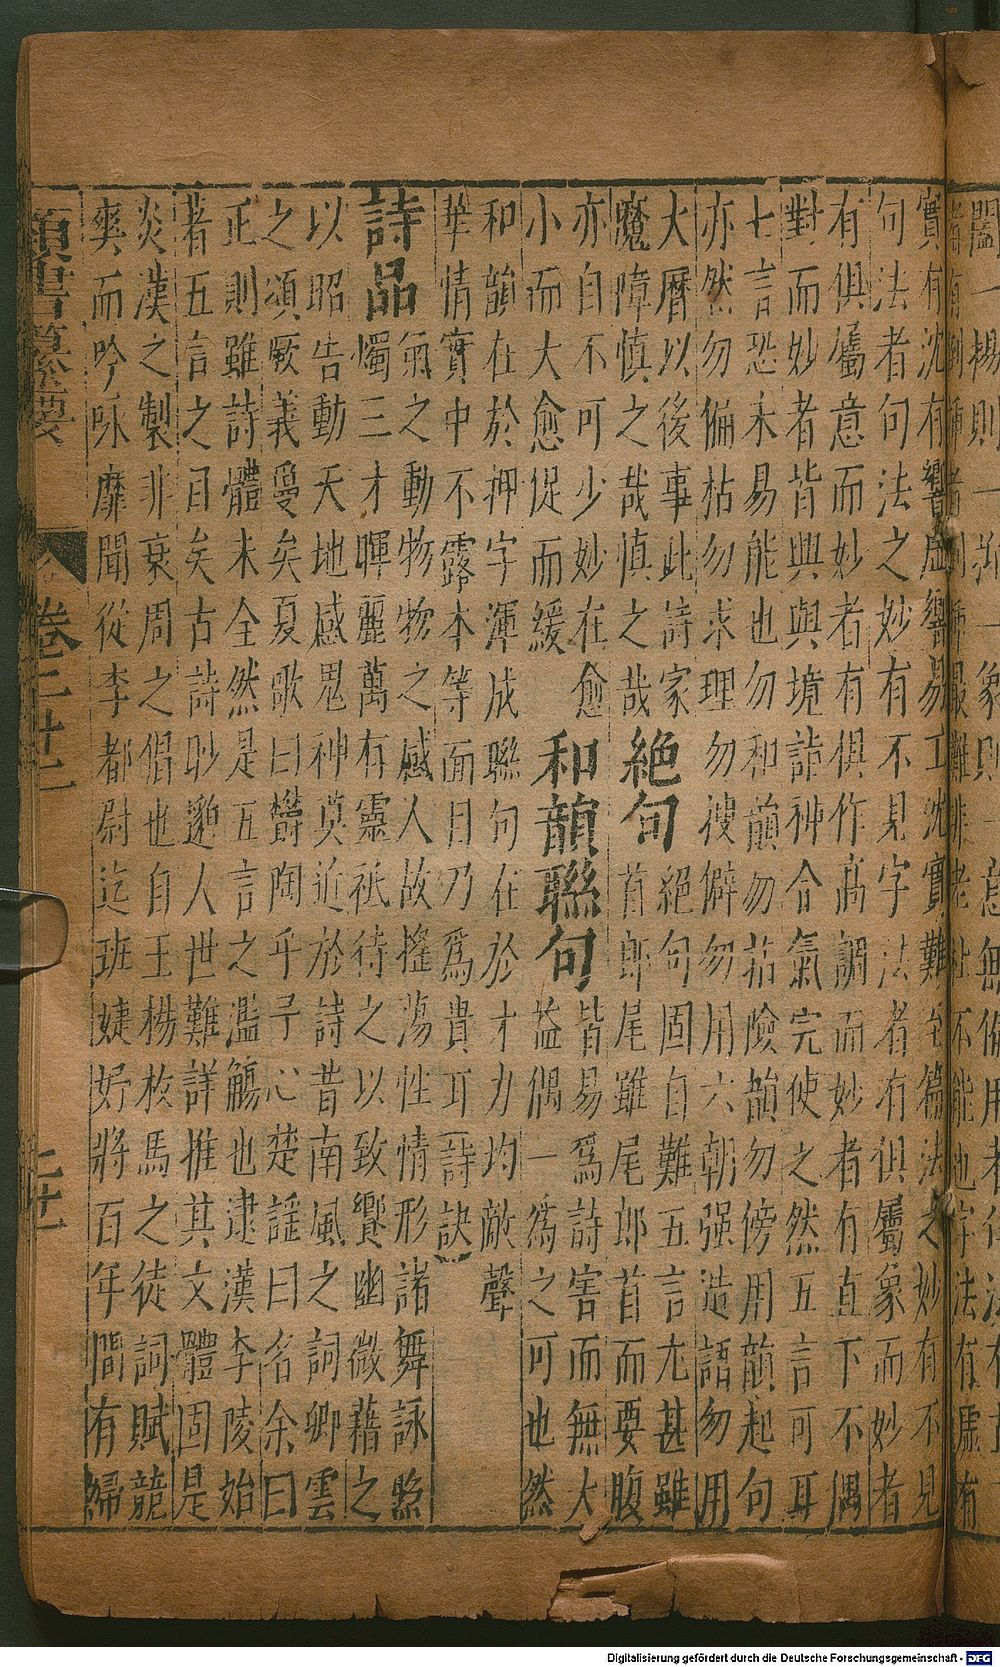 闔一楊則一抑一象則一意無
最難非老杜不能也字法有虛有
實有沈有響虛響易工沈實難至篇法之妙有不見
句法者句法之妙有不見字法者有俱屬象而妙者
有俱屬意而妙者有俱作高調而妙者有直下不偶
對而妙者皆興與境詣神合氣完使之然五言可耳
七言恐未易能也勿和韻勿拈險韻勿傍用韻起句
亦然勿偏枯勿求理勿搜僻勿用六朝强造語勿用
大曆以後事此詩家
魔障慎之哉慎之哉
絶句
絶句固自難五言尤甚雖
首郎尾雖尾郎首而要腹
亦自不可少妙在愈
小而大愈促而緩
和韻聯句
皆易爲詩害而無大
益偶一爲之可也然
和韻在於押字渾成聯句在於才力均敵聲
華情實中不露本等面目乃爲貴耳詩訣
詩品
氣之動物物之感人故搖蕩性情形諸舞詠照
燭三才暉麗萬有靈祇待之以致饗幽微藉之
以昭告動天地感鬼神莫近於詩昔南風之詞卿雲
之頌厥義敻矣夏歌曰鬱陶乎予心楚謠曰名余曰
正則雖詩體未全然是五言之濫觴也逮漢李陵始
著五言之目矣古詩眇邈人世難詳推其文體固是
炎漢之製非衰周之倡也自王楊枚馬之徒詞賦競
爽而吟咏靡聞從李都尉迄班婕妤將百年間有婦
類書纂要 卷二十二
Digitalisierung gefördert durch die Deutsche Forschungsgemeinschaft - DFG